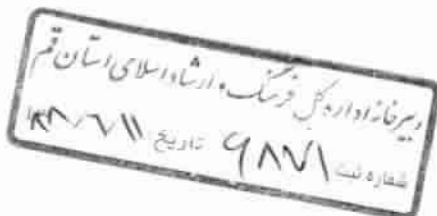 دبیرخانه اداره کل فرهنگ و ارشاد اسلامی استان قم
شماره ثبت ۶۸۷۱ تاریخ